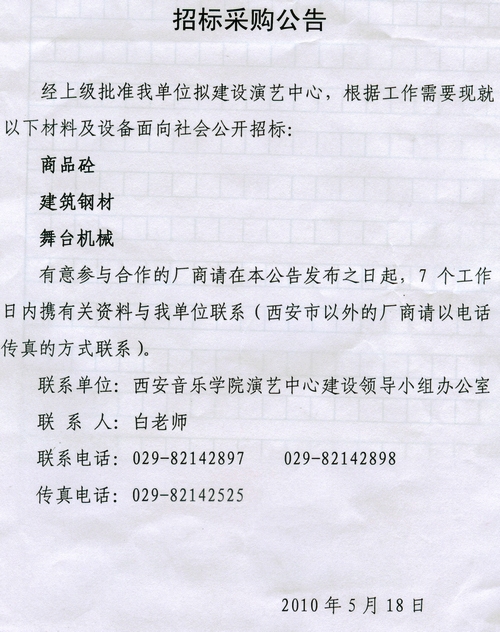 招标采购公告
经上级批准我单位拟建设演艺中心，根据工作需要现就
以下材料及设备面向社会公开招标：
商品砼
建筑钢材
舞台机械
有意参与合作的厂商请在本公告发布之日起，7 个工作
日内携有关资料与我单位联系（西安市以外的厂商请以电话
传真的方式联系）。
联系单位：西安音乐学院演艺中心建设领导小组办公室
联 系 人：白老师
联系电话：029-82142897 029-82142898
传真电话：029-82142525
2010 年 5 月 18 日